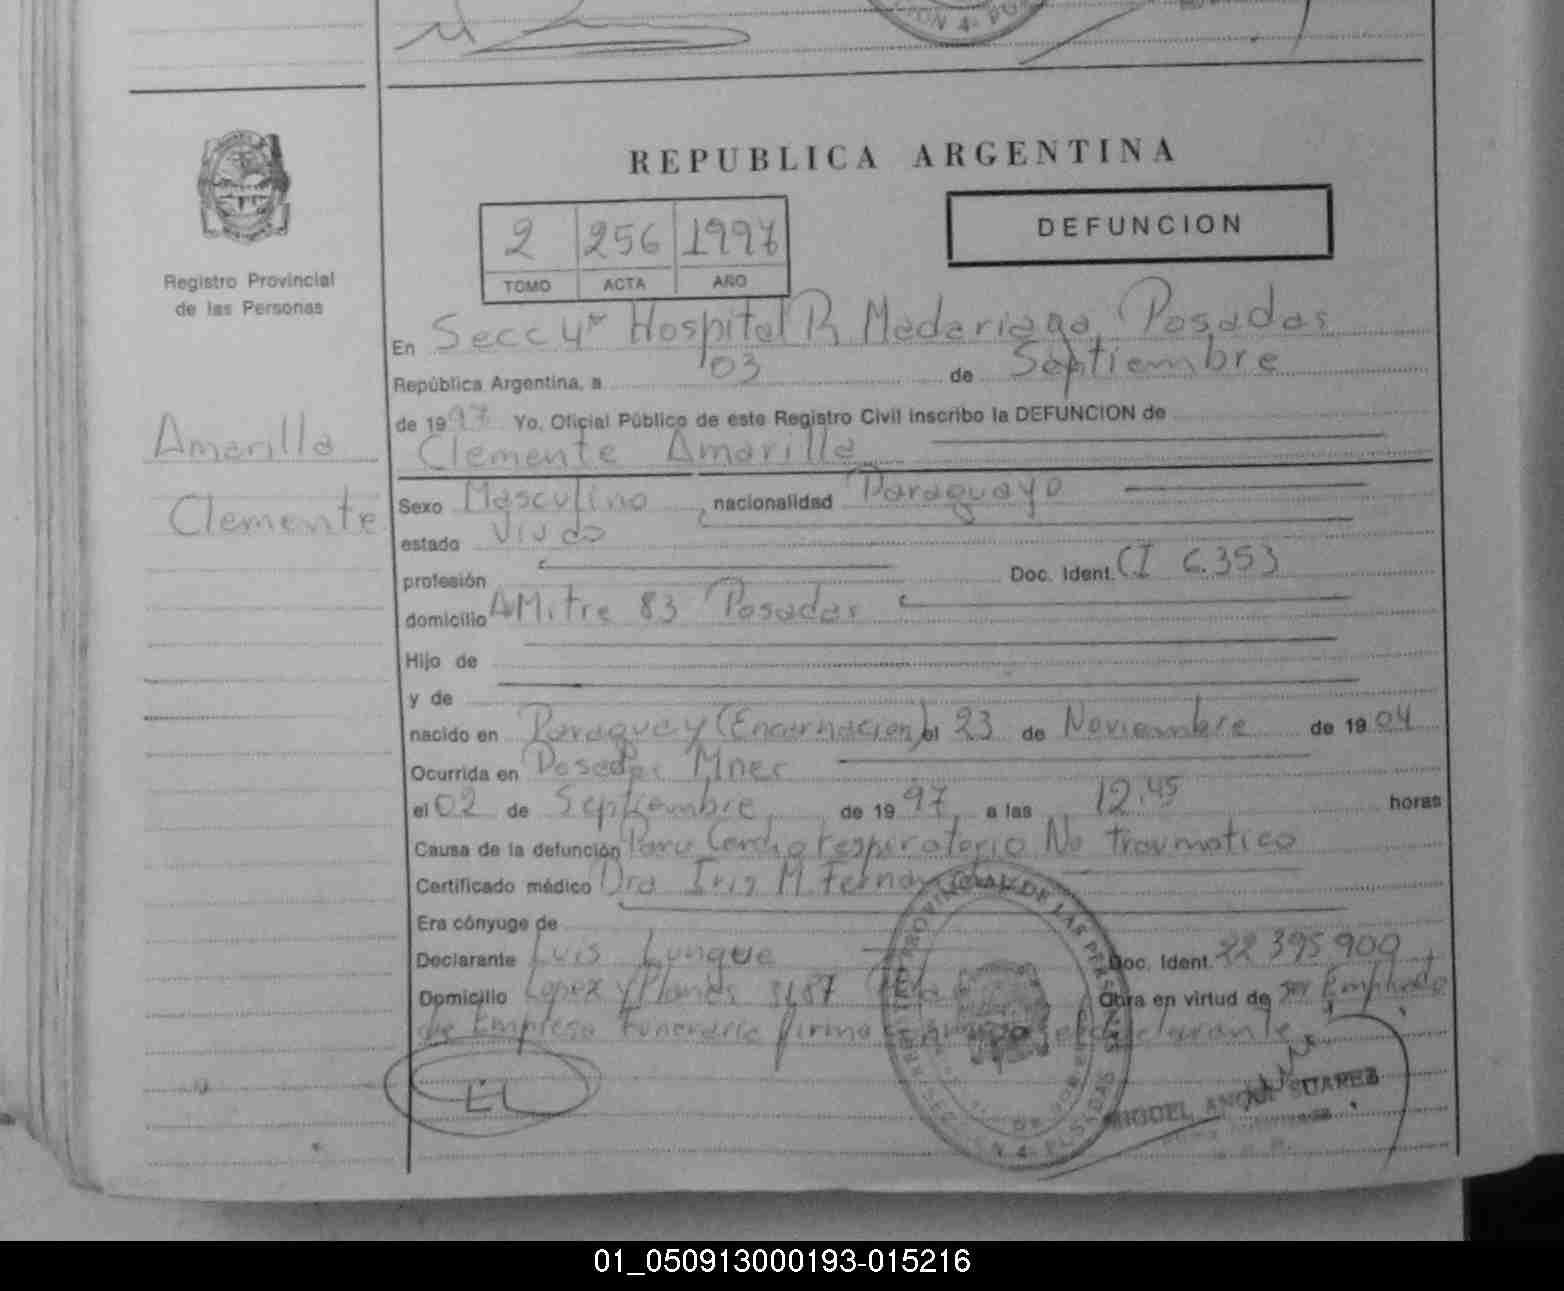 CION 4- PO
REPUBLICA ARGENTINA
2 256 1997
TOMO ACTA AÑO
DEFUNCION
Registro Provincial
de las Personas
En Secc 4ª Hospital R Madariaga Posadas
República Argentina, a 03 de Septiembre
de 1997 Yo, Oficial Público de este Registro Civil inscribo la DEFUNCION de
Amarilla
Clemente Amarilla
Clemente
Sexo Masculino nacionalidad Paraguayo
estado Viudo
profesión Doc. Ident. CI 6.353
domicilio AMitre 83 Posadas
Hijo de
y de
nacido en Paraguay (Encarnacion) el 23 de Noviembre de 1904
Ocurrida en Posadas Mnes
el 02 de Septiembre de 1997 a las 12.45 horas
Causa de la defunción Paro Cardio respiratorio No traumatico
Certificado médico Dra Iris M. Fernandez
Era cónyuge de
Declarante Luis Lunque Doc. Ident. 22 395 900
Domicilio Lopez y Planes 3187 Obra en virtud de ser Empleado
de Empresa Funeraria firma el declarante
MIGUEL ANGEL SUAREZ
01_050913000193-015216